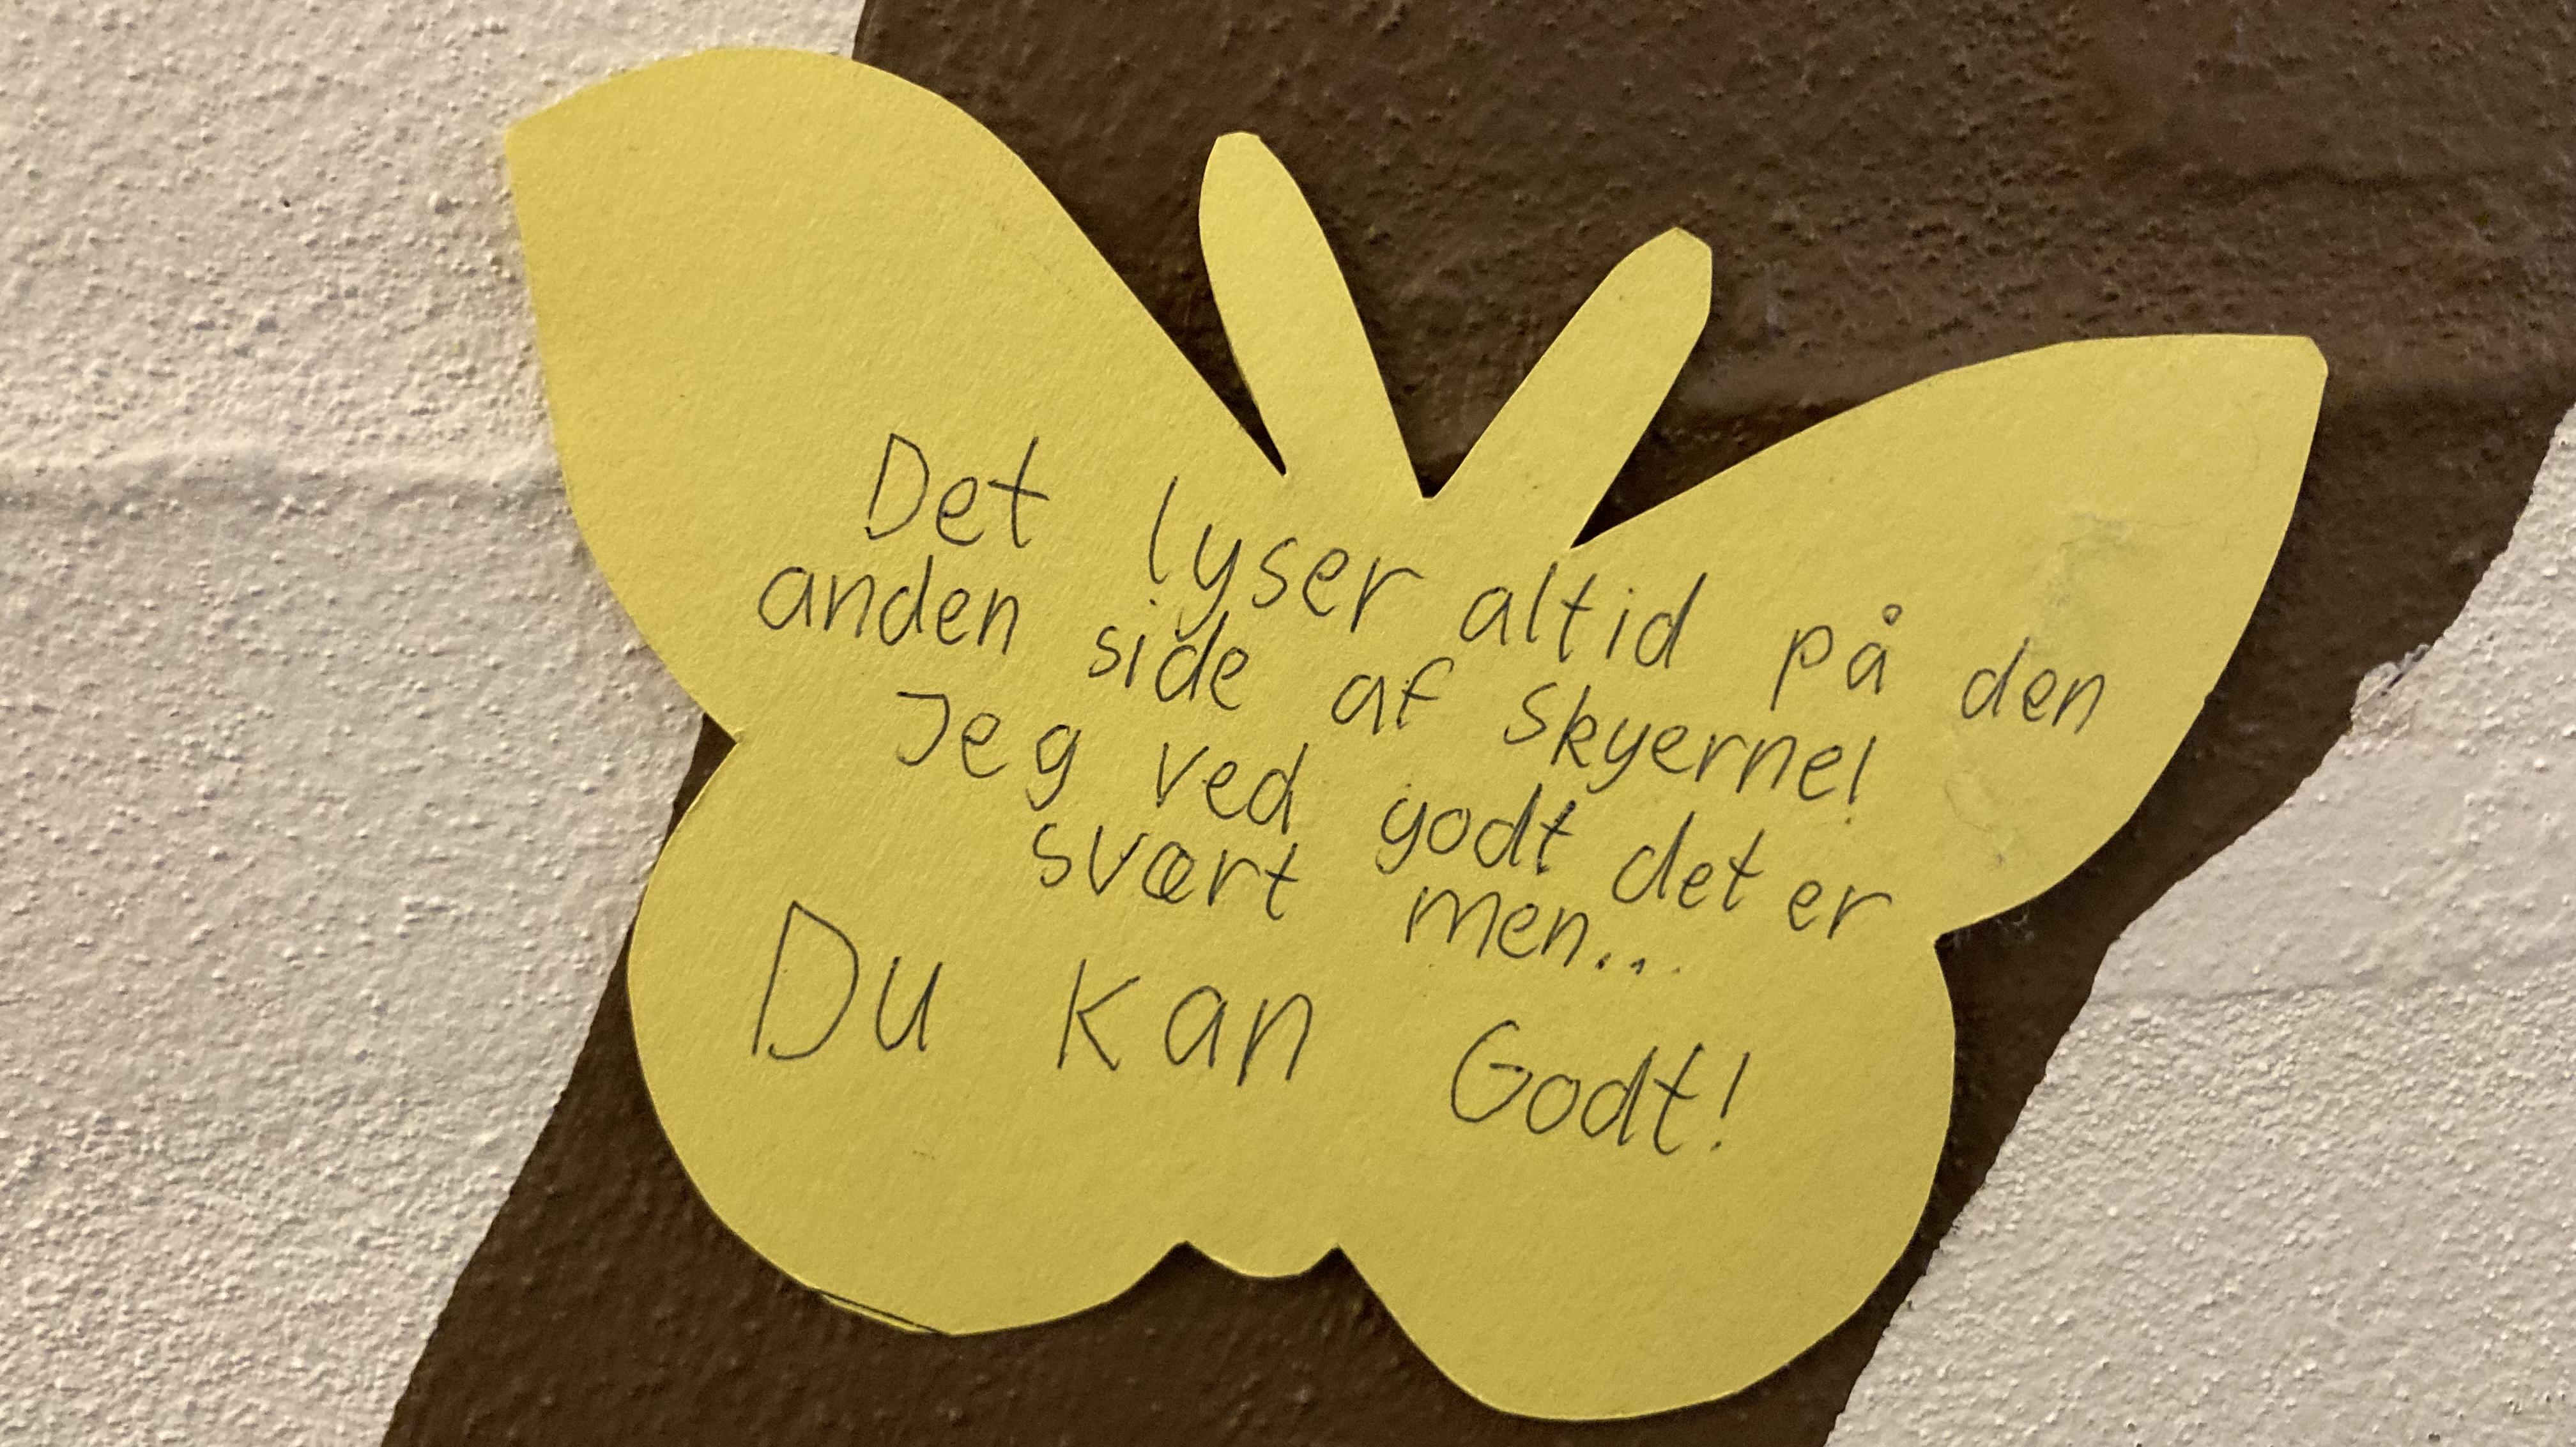 Det lyser altid på den
anden side af skyerne!
Jeg ved godt det er
svært men...
Du kan Godt!